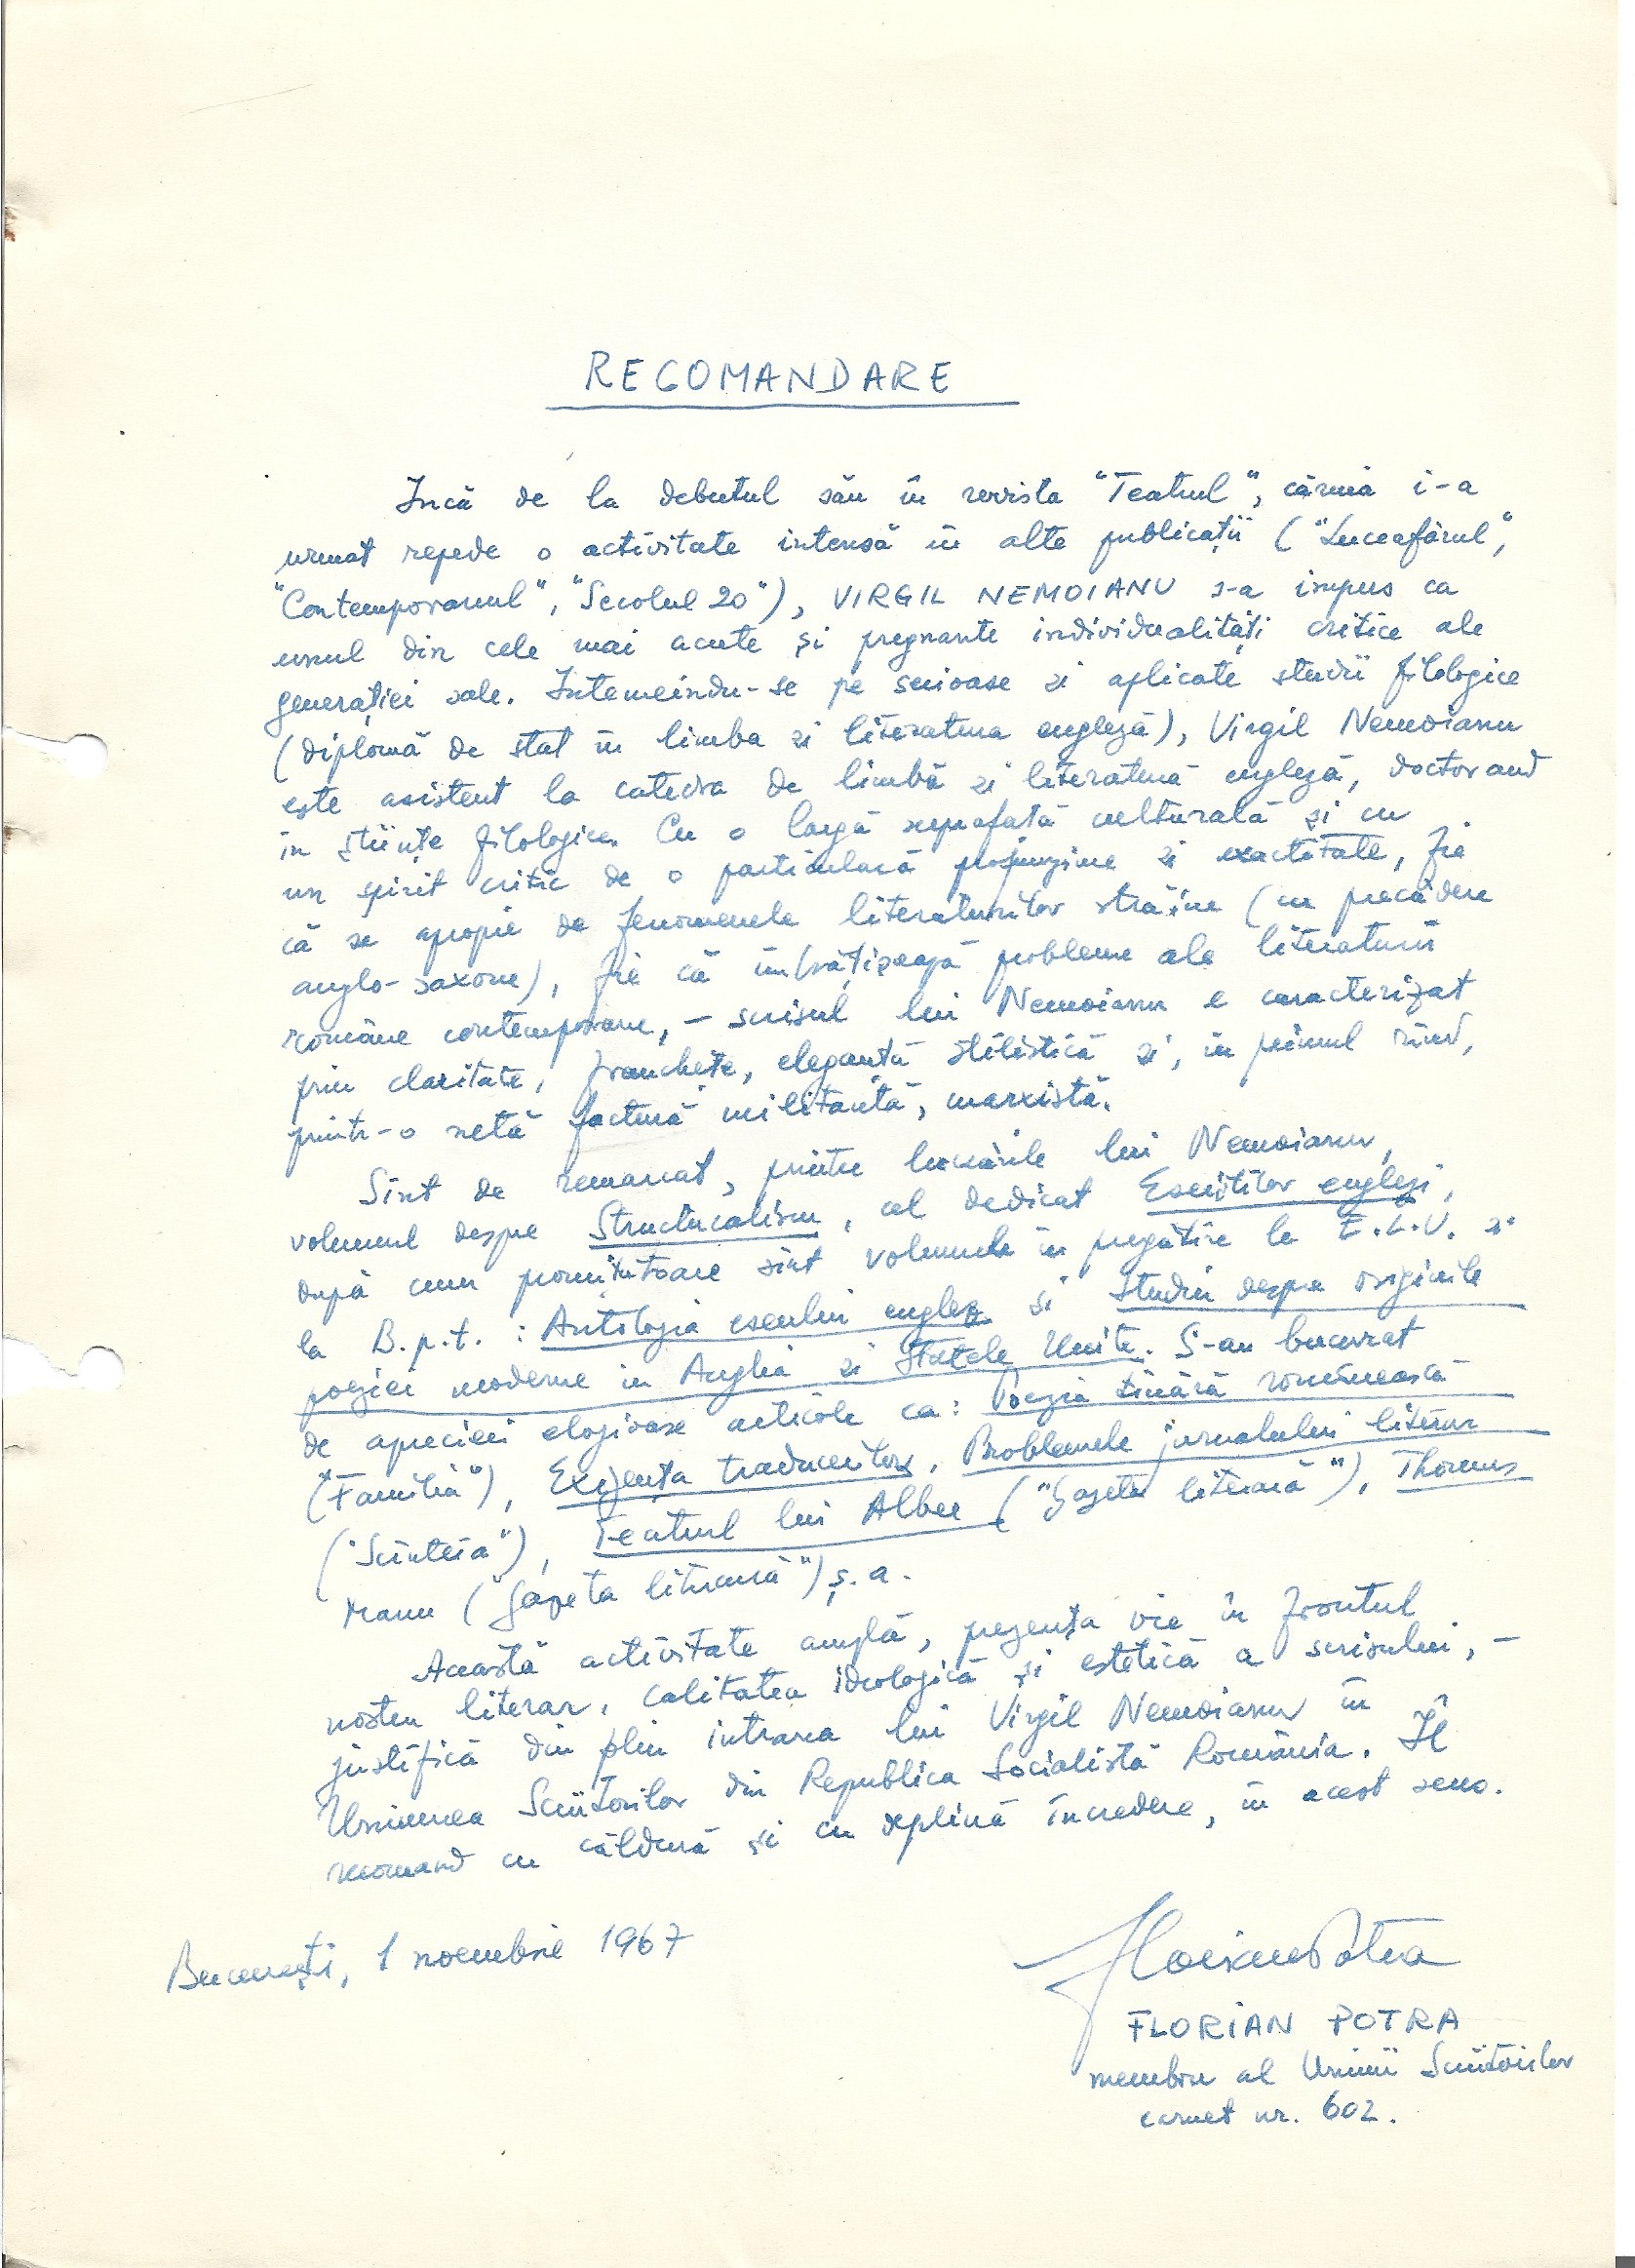 RECOMANDARE
Încă de la debutul său în revista "Teatrul", căruia i-a
urmat repede o activitate intensă în alte publicații ("Luceafărul",
"Contemporanul", "Secolul 20"), VIRGIL NEMOIANU s-a impus ca
unul din cele mai acute și pregnante individualități critice ale
generației sale. Întemeindu-se pe serioase și aplicate studii filologice
(diplomă de stat în limba și literatura engleză), Virgil Nemoianu
este asistent la catedra de limbă și literatură engleză, doctorand
în științe filologice. Cu o largă suprafață culturală și cu
un spirit critic de o particulară profunzime și exactitate, fie
că se apropie de fenomenele literaturilor străine (cu precădere
anglo-saxone), fie că îmbrățișează probleme ale literaturii
române contemporane, – scrisul lui Nemoianu e caracterizat
prin claritate, franchețe, eleganță stilistică și, în primul rînd,
printr-o netă factură militantă, marxistă.
Sînt de remarcat, printre lucrările lui Nemoianu,
volumul despre Structuralism, cel dedicat Eseiștilor englezi,
după cum promițătoare sînt volumele în pregătire la E.L.U. și
la B.p.t. : Antologia eseului englez și Studii despre originile
poeziei moderne în Anglia și Statele Unite. S-au bucurat
de aprecieri elogioase articole ca: Poezia tînără românească
("Familia"), Exigența traducerilor, Problemele jurnalului literar
("Scînteia"), Teatrul lui Albee ("Gazeta literară"), Thomas
Mann ("Gazeta literară") ș.a.
Această activitate amplă, prezența vie în frontul
nostru literar, calitatea ideologică și estetică a scrisului, –
justifică din plin intrarea lui Virgil Nemoianu în
Uniunea Scriitorilor din Republica Socialistă România. Îl
recomand cu căldură și cu deplină încredere, în acest sens.
București, 1 noembrie 1967
Florian Potra
FLORIAN POTRA
membru al Uniunii Scriitorilor
carnet nr. 602.